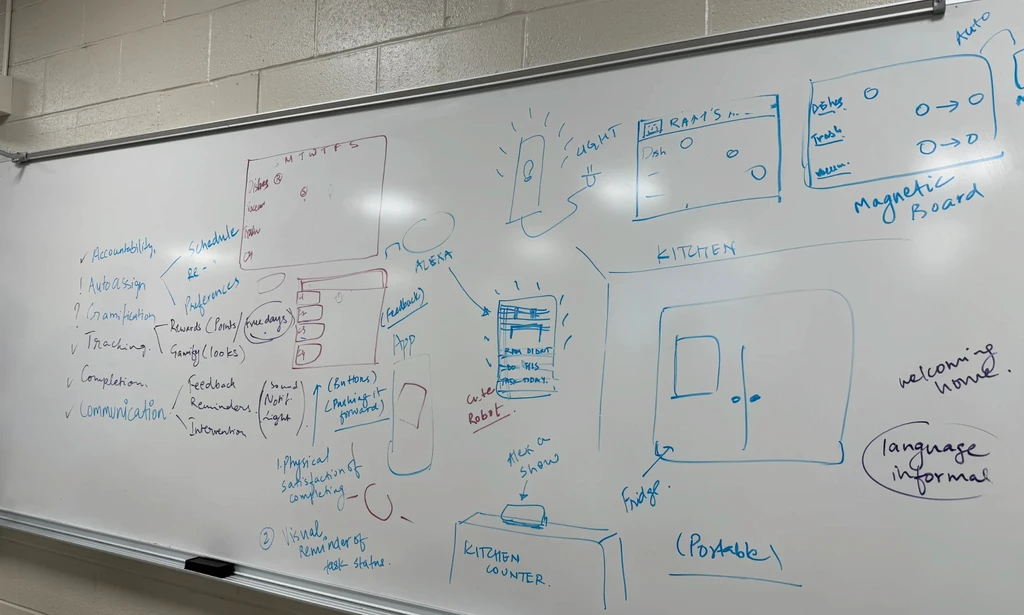 ✓ Accountability.
! Autoassign
? Gramification
✓ Tracking.
✓ Completion.
✓ Communication
Schedule
Re-
Preferences
Rewards (Points/
free days)
Gamify (looks)
Feedback
Reminders.
Intervention
Sound
Notif
Light
M T W T F S
Dishes
Vacuum
Trash
(feedback)
App
(Buttons)
(Pushing it
forward)
1. Physical
satisfaction of
completing
② Visual
Reminder of
task status.
LIGHT
ALEXA
RAM DIDNT
DO HIS
TASK TODAY.
cute
Robot.
Alexa
show
KITCHEN
COUNTER.
RAM'S
Dish
Auto
Dishes
Trash
Vacuum.
Magnetic
Board
KITCHEN
Fridge.
(Portable)
welcoming
home.
language
informal